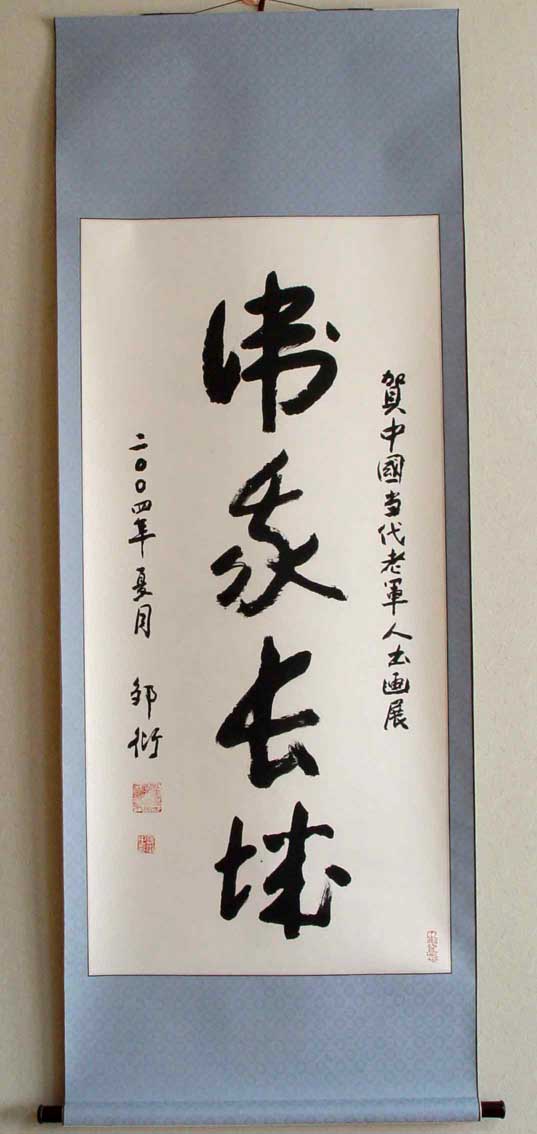 賀中國当代老軍人书画展
衛長城
二〇〇四年夏月 邹衍